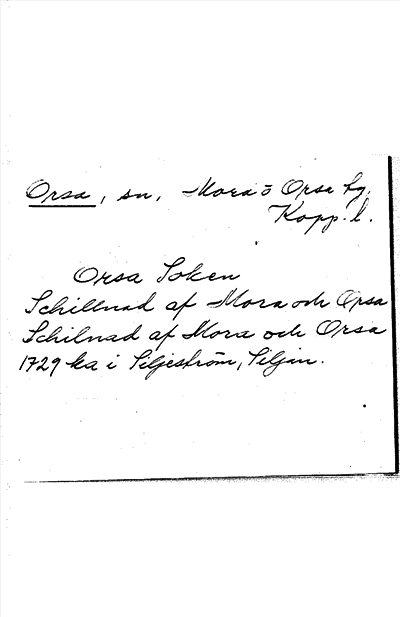 Orsa, sn, Mora o Orsa hg.
Kopp. l.
Orsa Soken
Schillnad af Mora och Orsa
Schilnad af Mora och Orsa
1729 ka i Siljeström, Siljan.